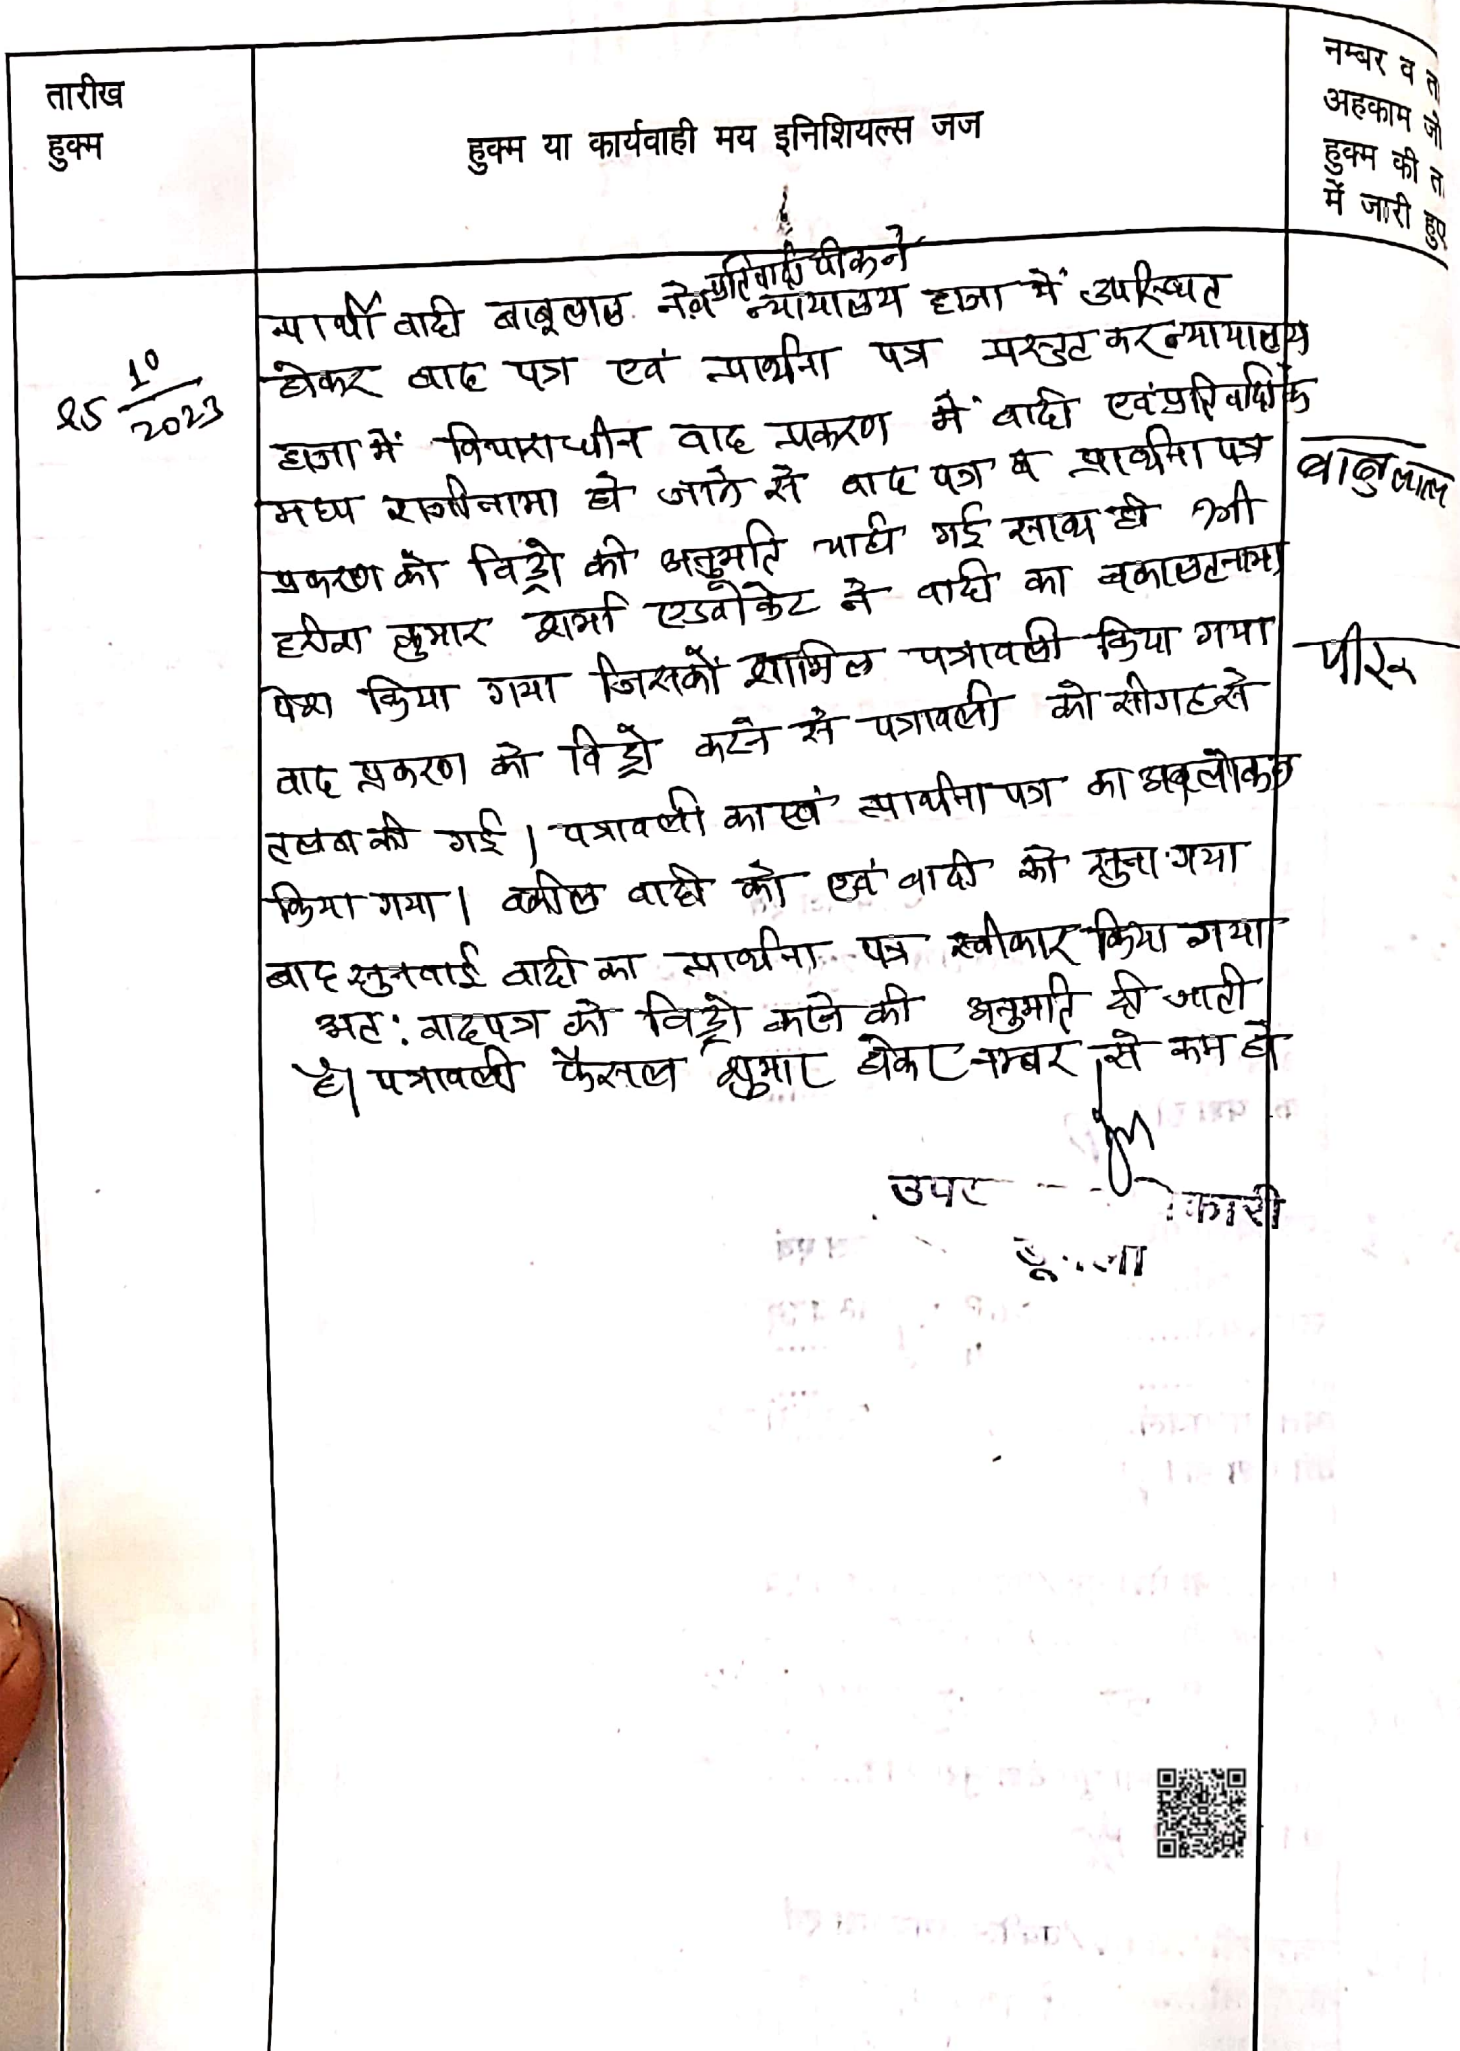 तारीख
हुक्म
हुक्म या कार्यवाही मय इनिशियल्स जज
नम्बर व
अहकाम जो
हुक्म की
में जारी हुए
25 10/2023
प्रतिवादी पीरू ने
प्रार्थी वादी बाबूलाल ने न्यायालय हाजा में उपस्थित
होकर वाद पत्र एवं प्रार्थना पत्र प्रस्तुत कर न्यायालय
हाजा में विचाराधीन वाद प्रकरण में वादी एवं प्रतिवादी के
मध्य राजीनामा हो जाने से वाद पत्र व प्रार्थना पत्र
प्रकरण को विड्रो की अनुमति चाही गई साथ ही श्री
कुमार शर्मा एडवोकेट ने वादी का वकालतनामा
पेश किया गया जिसको शामिल पत्रावली किया गया
वाद प्रकरण को विड्रो करने से पत्रावली को सीगह से
तलब की गई। पत्रावली का एवं प्रार्थना पत्र का अवलोकन
किया गया। वकील वादी को एवं वादी को सुना गया
बाद सुनवाई वादी का प्रार्थना पत्र स्वीकार किया गया
अत: वादपत्र को विड्रो करने की अनुमति दी जाती
है। पत्रावली फैसल शुमार होकर नम्बर से कम हो
बाबुलाल